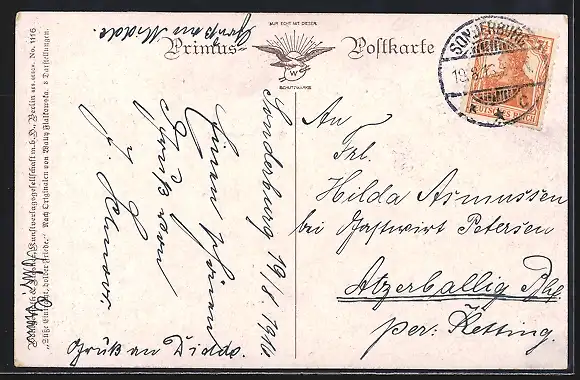 Gruß an Modde.
NUR ECHT MIT DIESER
Primus- Postkarte
W
SCHUTZMARKE
SONDERBURG
19.8.16
* * C
DEUTSCHES REICH
Sonderburg 19/8. 1916.
Einen schönen
Gruß von
J.
Gruß an Diddo.
An
Frl.
Hilda Asmussen
bei Gastwirt Petersen
Atzerballig
per: Ketting.
Kunstverlagsgesellschaft m.b.H., Berlin No. 1116
"Süße Einfalt, holder Friede." Nach Originalen von Wally Fialkowska. 8 Darstellungen.